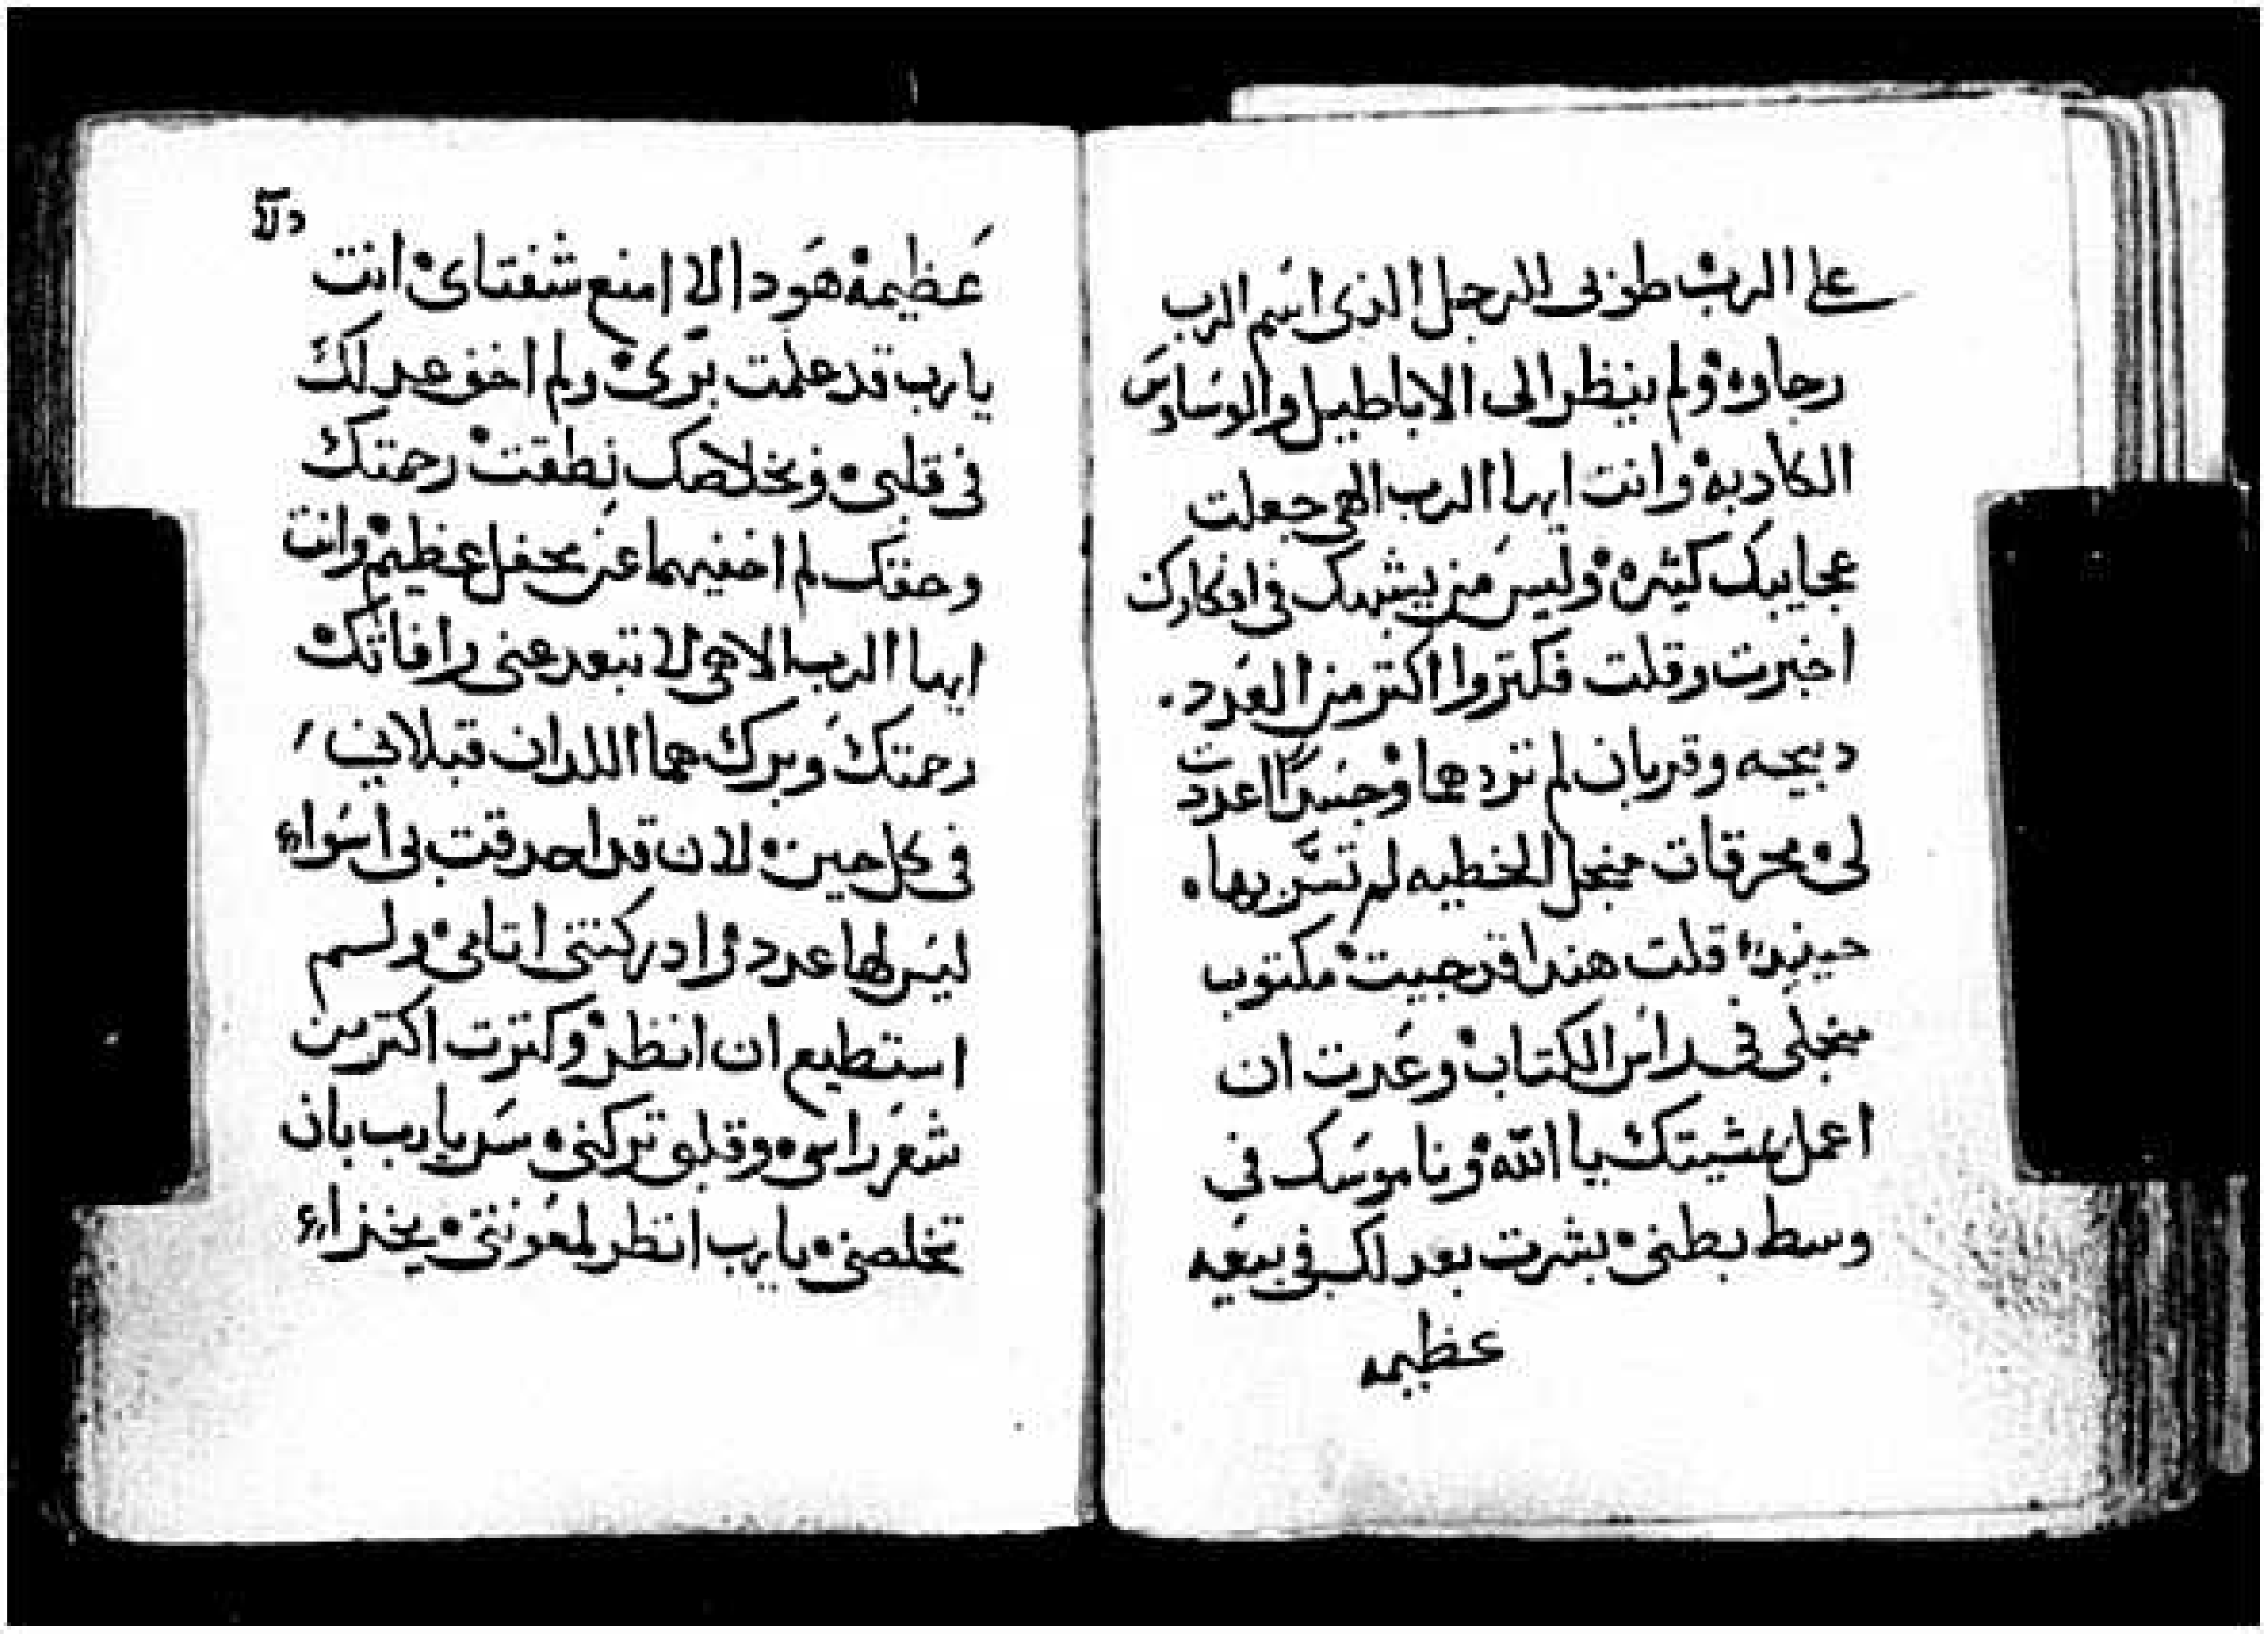 على الرب طوبى للرجل الذى اسم الرب
رجاوه ولم ينظر الى الاباطيل والوساوس
الكادبه وانت ايها الرب الهى جعلت
عجايبك كثيره وليس من يشبهك فى افكارك
اخبرت وقلت فكتروا اكتر من العدد.
دبيحه وقربان لم تردهما وجسدًا اعددت
لى محرقات من اجل الخطيه لم تسَّر بها.
حينيد قلت هندا قد جيت مكتوب
من اجلى فى راس الكتاب وعدت ان
اعمل بمشيتك يا الله وناموسك فى
وسط بطنى بشرت بعدلك فى بيعه
عظيمه
عظيمه هودا لا امنع شفتاى انت
يارب قد علمت برى ولم اخف عدلك
فى قلبى وبخلاصك نطقت رحمتك
وحقك لم اخفيهما عن محفل عظيم وانت
ايها الرب الاهى لا تبعد عنى رافاتك
رحمتك وبرك هما اللدان قبلانى
فى كل حين لان قد احدقت بى اسواء
ليس لها عدد وادركتنى اتامى ولم
استطيع ان انظر وكترت اكتر من
شعر راسى وقلبى تركنى سر يارب بان
تخلصنى يارب انظر لمعونتى يخزاء